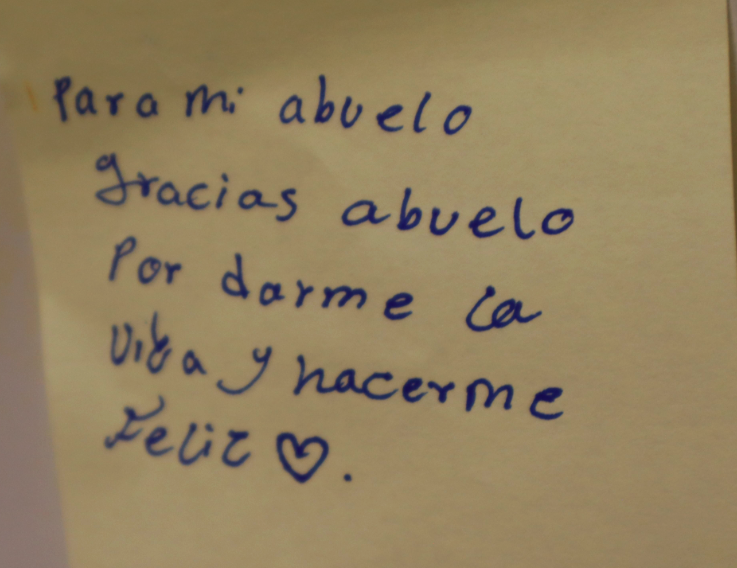 Para mi abuelo
gracias abuelo
Por darme la
vida y hacerme
Feliz ♡.